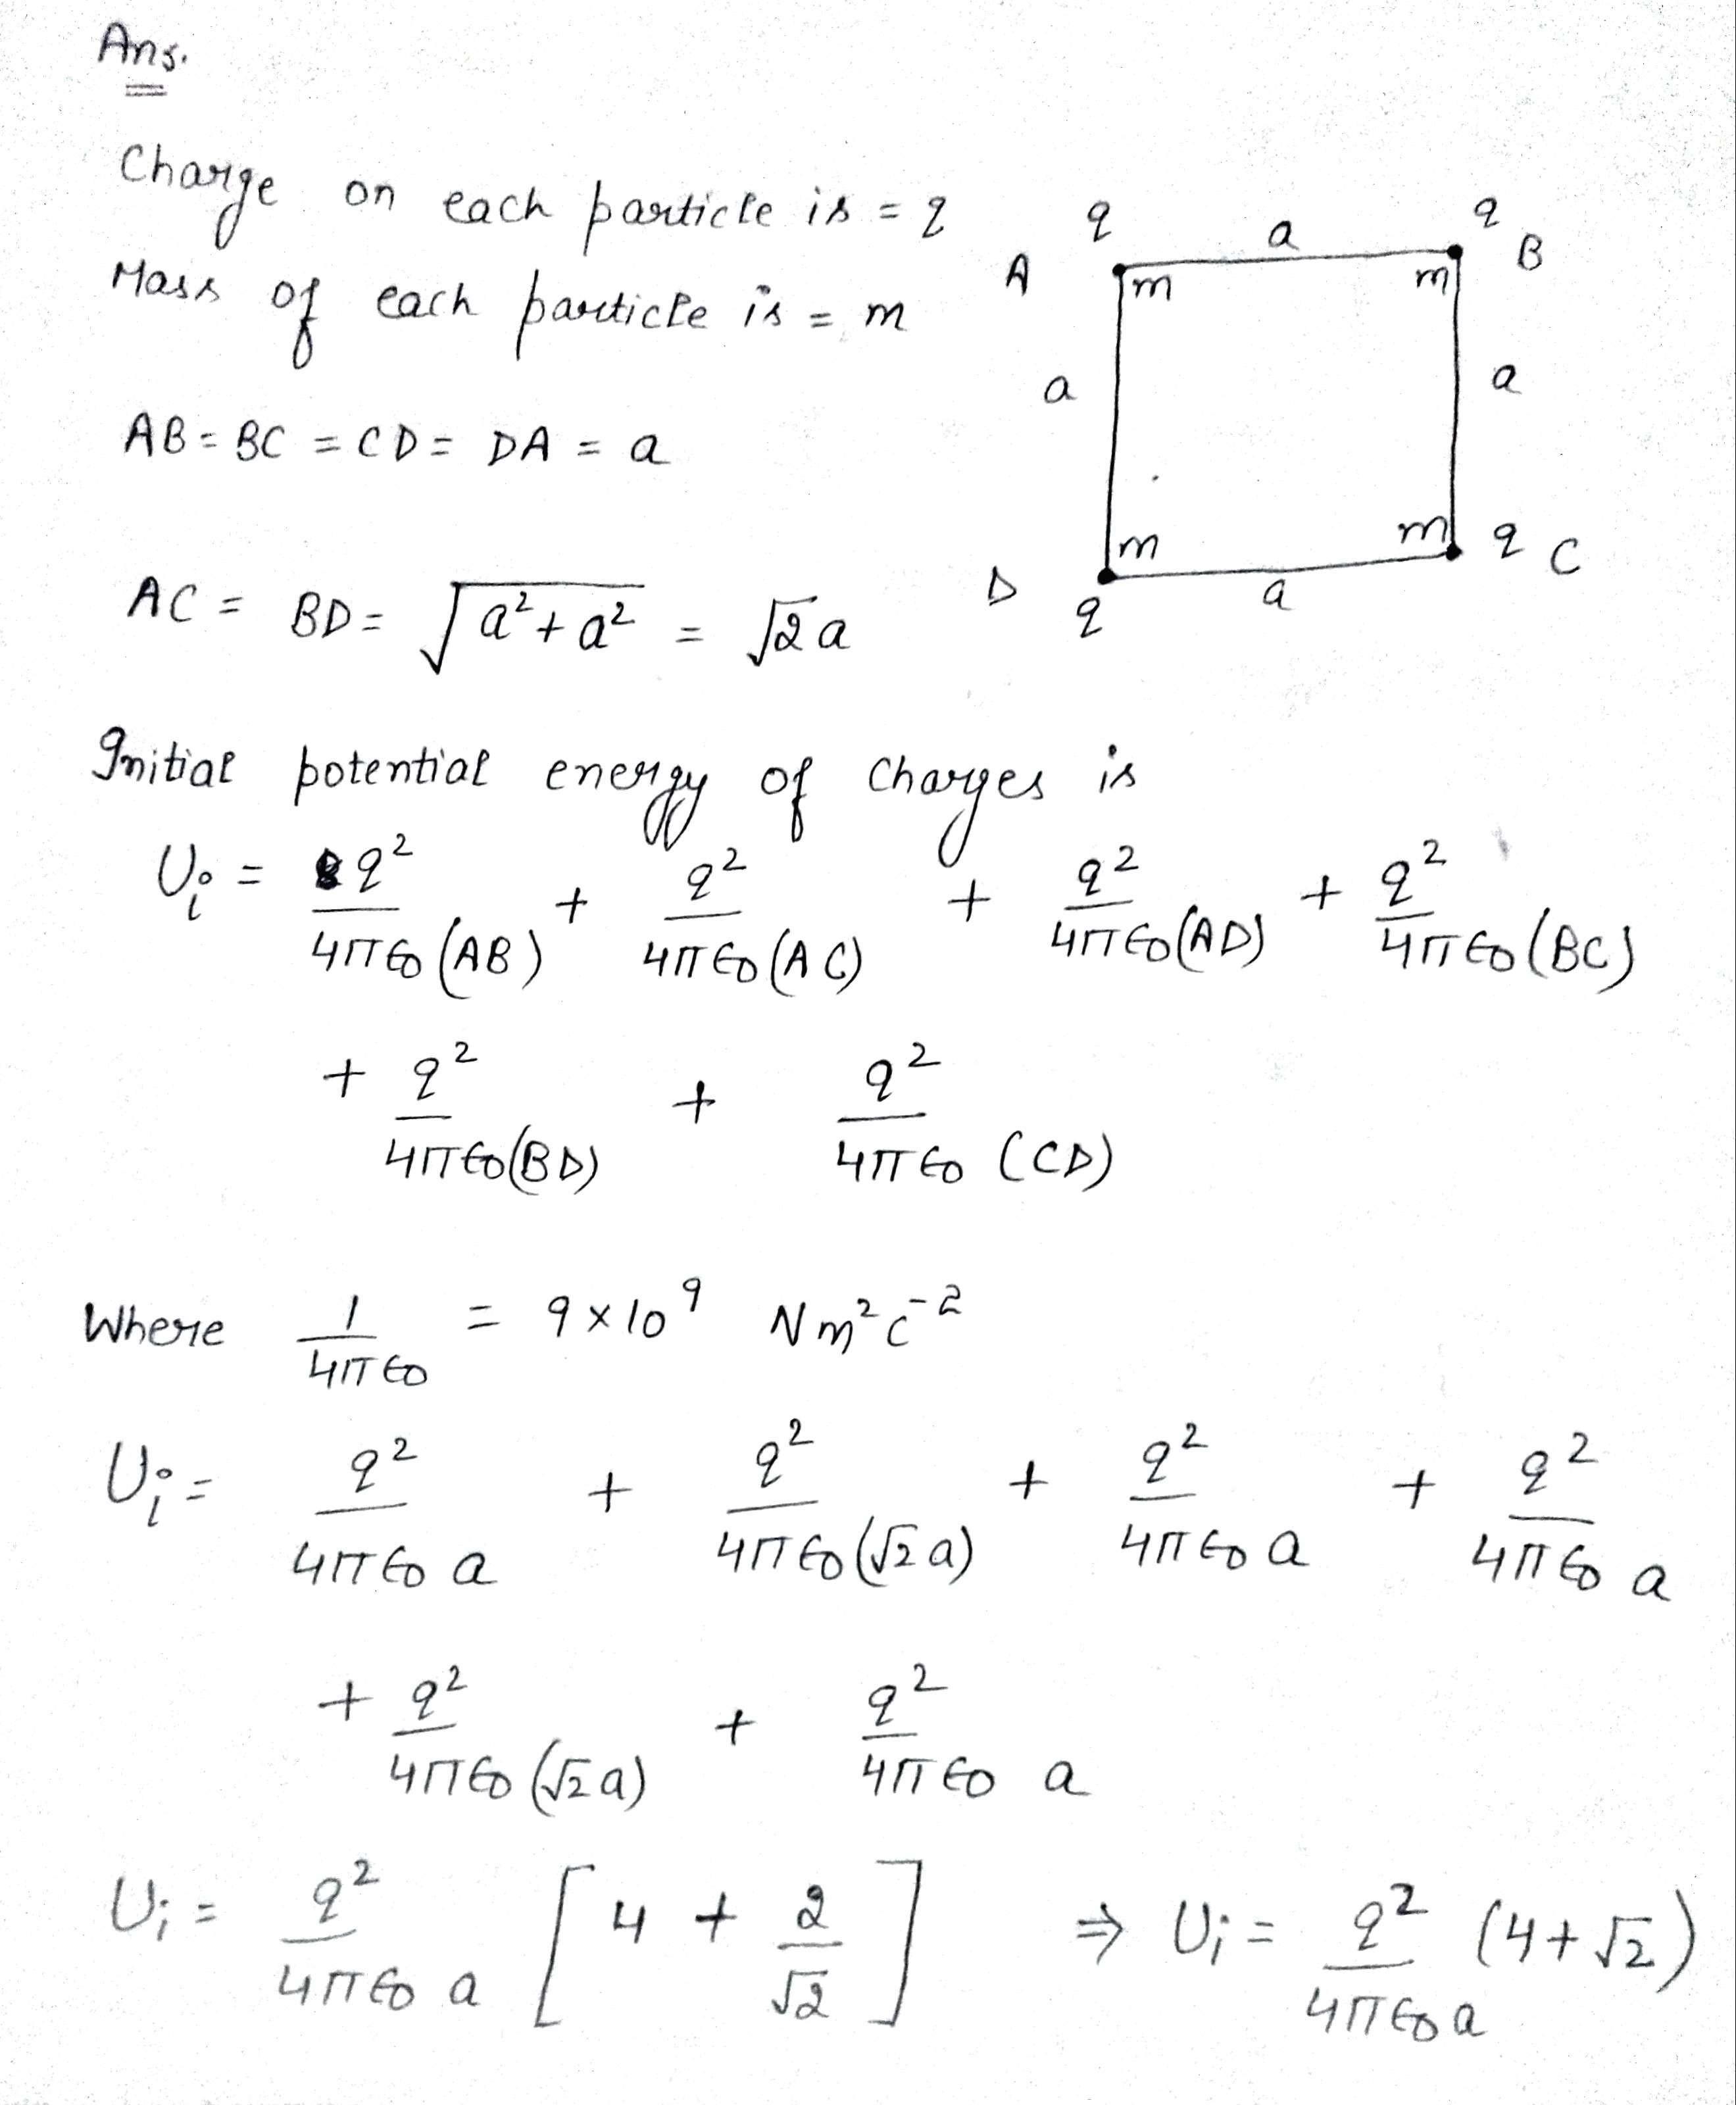 Ans.
Charge on each particle is = q
Mass of each particle is = m
AB = BC = CD = DA = a
AC = BD = √(a² + a²) = √2 a
q a q
A B
m m
a a
m m q C
D q a
Initial potential energy of charges is
Ui = q²/4π∈0(AB) + q²/4π∈0(AC) + q²/4π∈0(AD) + q²/4π∈0(BC)
+ q²/4π∈0(BD) + q²/4π∈0(CD)
Where 1/4π∈0 = 9×10⁹ Nm²C⁻²
Ui = q²/4π∈0 a + q²/4π∈0(√2 a) + q²/4π∈0 a + q²/4π∈0 a
+ q²/4π∈0(√2 a) + q²/4π∈0 a
Ui = q²/4π∈0 a [4 + 2/√2] ⇒ Ui = q²/4π∈0 a (4+√2)